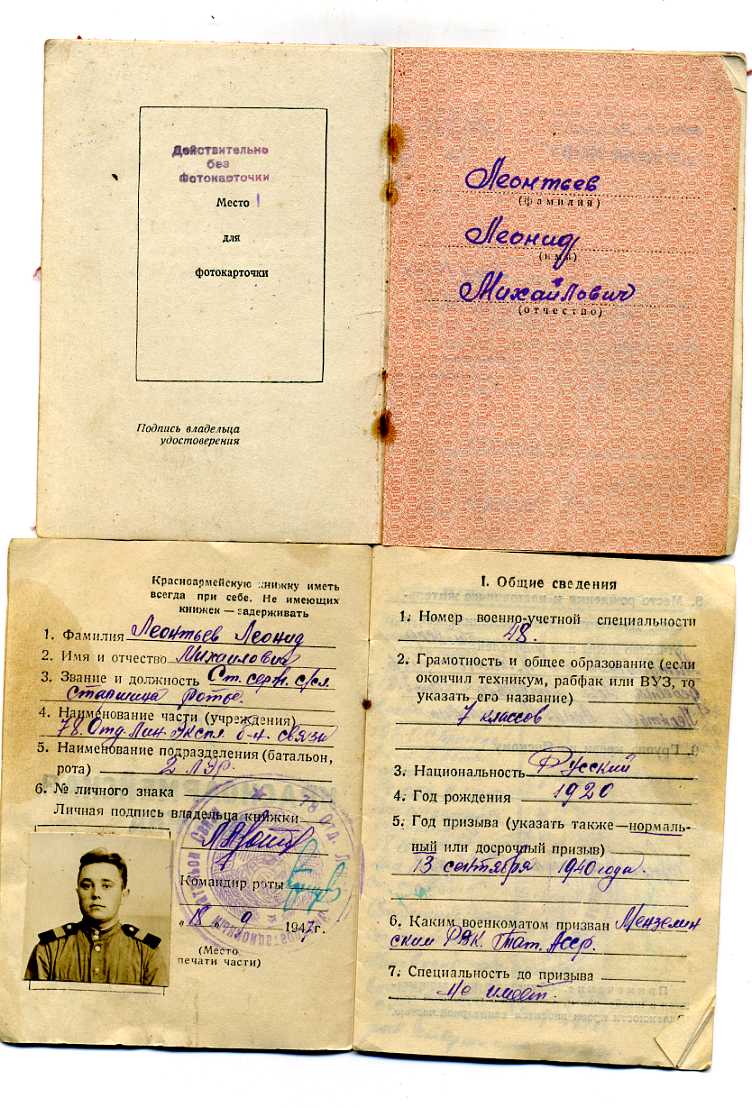 Действительно
без
фотокарточки
Место
для
фотокарточки
Подпись владельца
удостоверения
Леонтьев
(фамилия)
Леонид
(имя)
Михайлович
(отчество)
Красноармейскую книжку иметь
всегда при себе. Не имеющих
книжек — задерживать
1. Фамилия Леонтьев Леонид
2. Имя и отчество Михайлович
3. Звание и должность Ст. серж. с/сл
старшина роты.
4. Наименование части (учреждения)
78 Отд. Лин. Экспл. б-н. связи
5. Наименование подразделения (батальон,
рота) 2 ЛЭР.
6. № личного знака
Личная подпись владельца книжки
Командир роты
„18 9 1947 г.
(Место
печати части)
I. Общие сведения
1. Номер военно-учетной специальности
48.
2. Грамотность и общее образование (если
окончил техникум, рабфак или ВУЗ, то
указать его название)
7 классов
3. Национальность Русский
4. Год рождения 1920
5. Год призыва (указать также—нормаль-
ный или досрочный призыв)
13 сентября 1940 года.
6. Каким военкоматом призван Мензелин
ским РВК Тат. Асср.
7. Специальность до призыва
Не имеет.